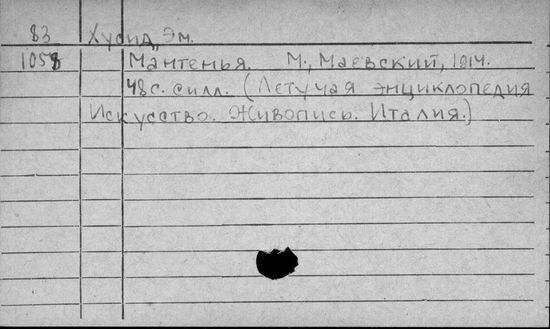 83 Хусид, Эм.
1058 Мантенья. М., Маевский, 1914.
48 с. силл. (Летучая энциклопедия
Искусство. Живопись. Италия.)